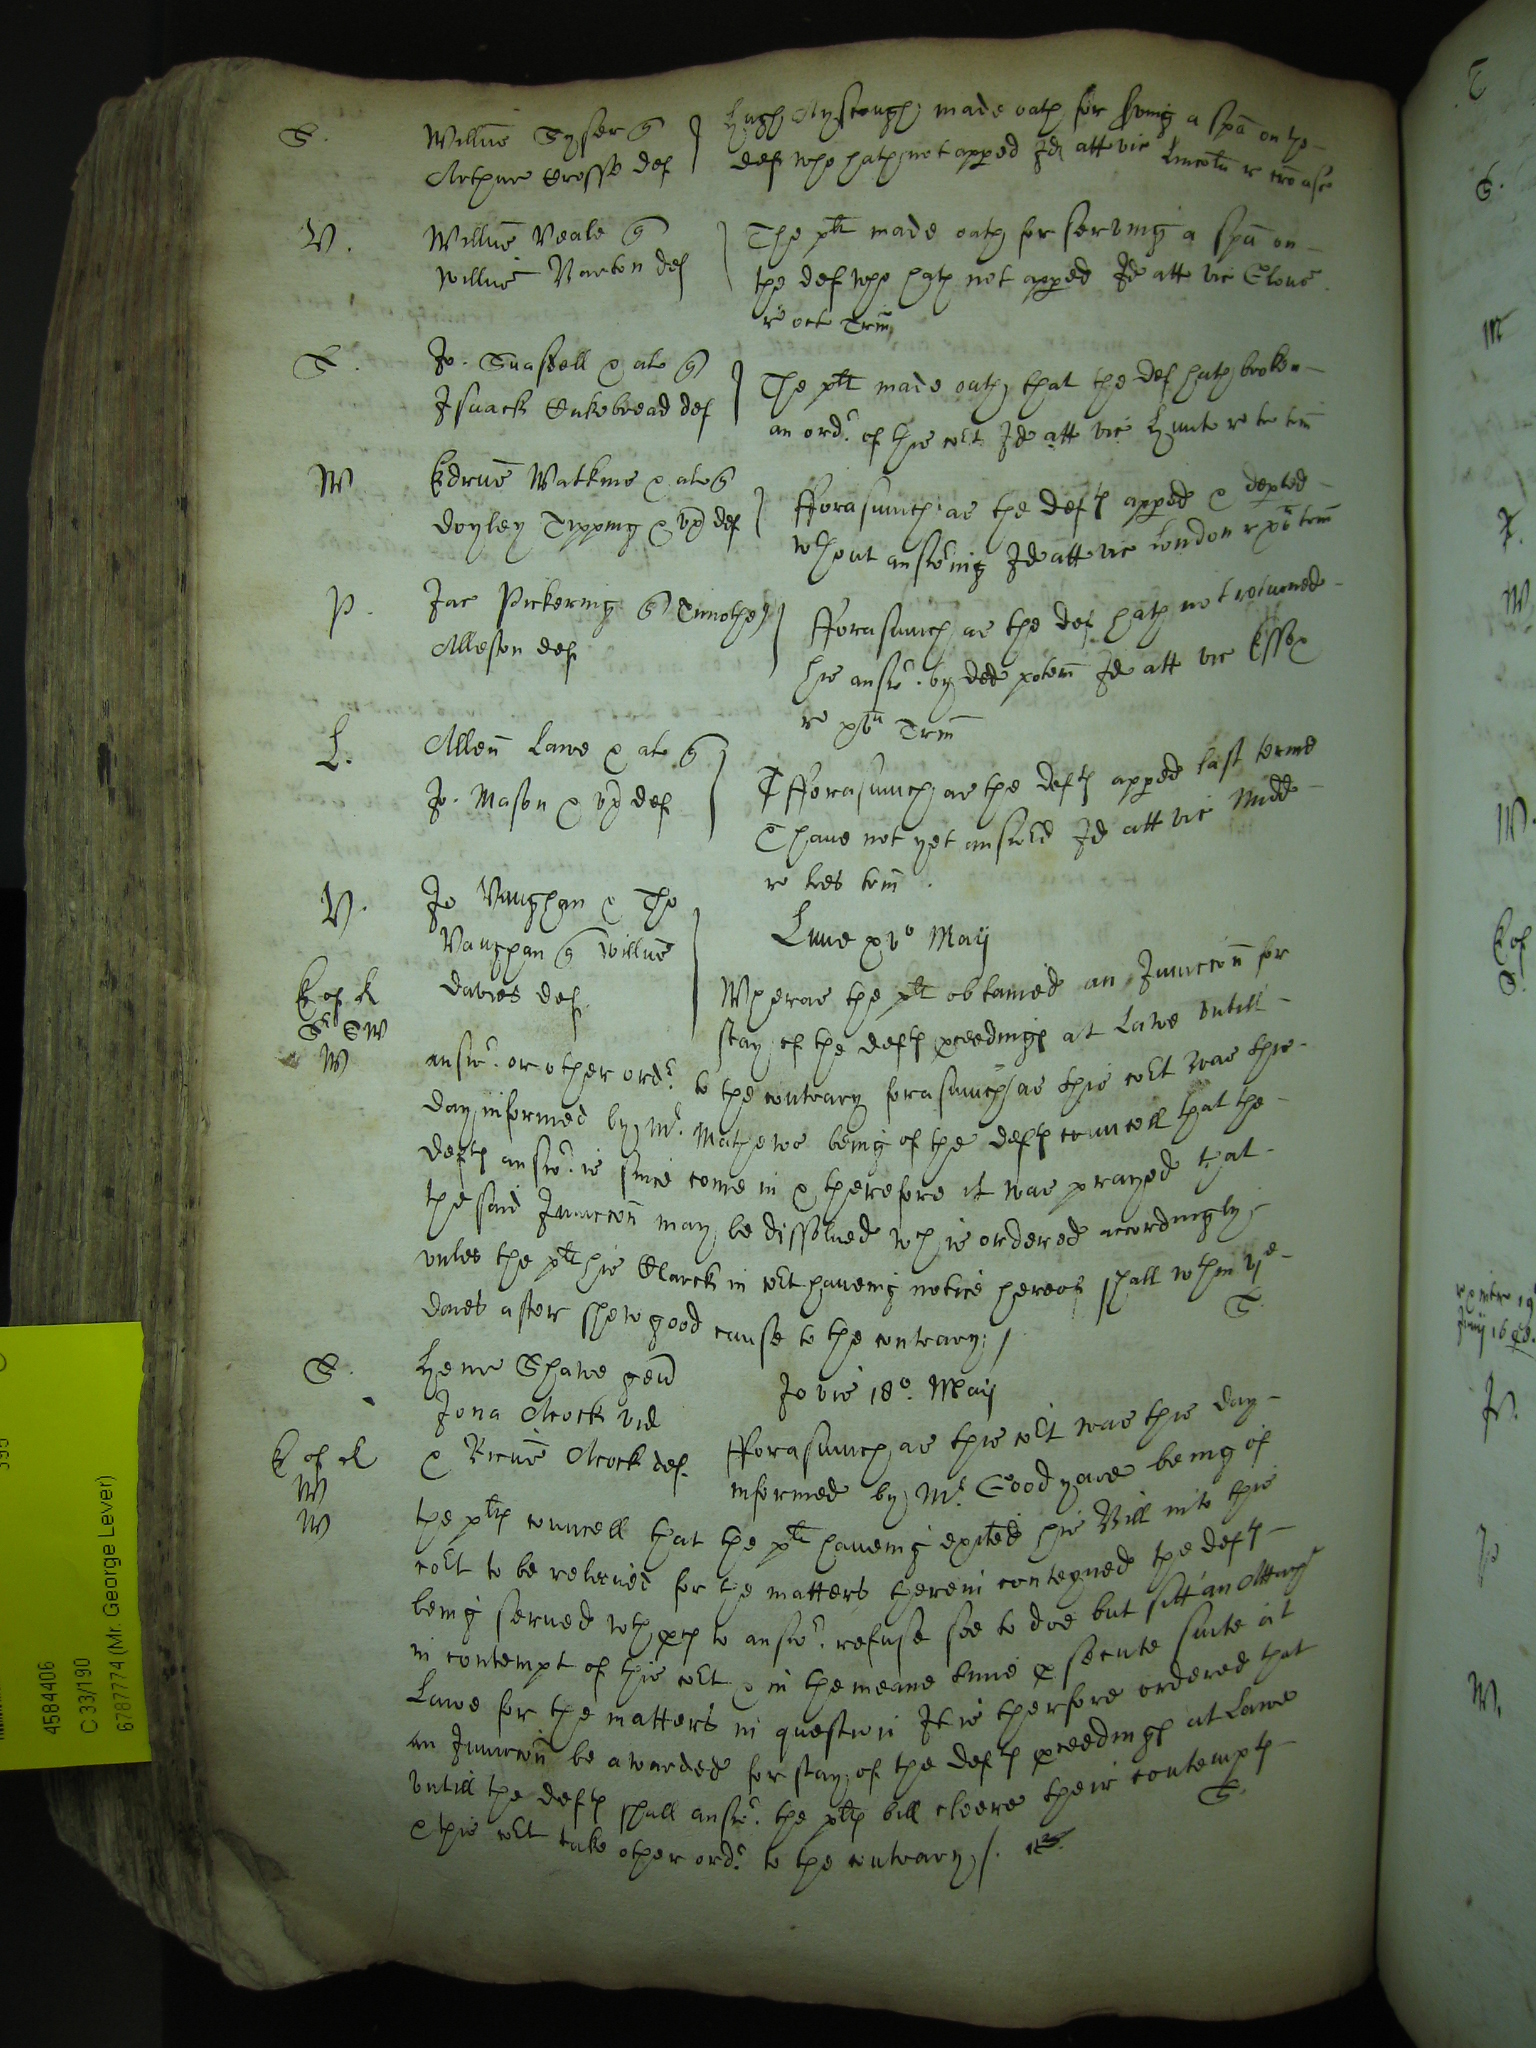 S.
Willm̄ Tyser
Arthure Crosse def
Hugh Ayscough made oath for s'ving a spā on the
def who hath not apped Id att vic Lincoln r cro asc
V.
Willm̄ Veale
Willm̄ Barton def
The plt made oath for serving a spā on
the def who hath not apped Id att vic Glouc
r oct Trin
S.
Jo. Snassell & al
Isaack def
The plt made oath that the def hath broken
an ord? of this co't Id att vic Hunt r tr trin
W
Edrūe Watkins & al
Doyley Tipping & ux def
fforasmuch as the defts apped & depted
wthout answ'ing Id att vic London r trin
P.
Jac Pickering Timothey
Alleson def
fforasmuch as the def hath not retourned
his answ? by ded potem Id att vic Essex
r Trin
L.
Allen Lawe & al
Jo. Mason & ux def
fforasmuch as the defts apped last terme
& have not yet answ'd Id att vic Midd
r tres trin.
V.
Jo Vaughan & Tho
Vaughan Willm̄
Davies def.
E of R
W
Lune xv° Maij
Wheras the plt obtained an Iniunccōn for
stay of the defts pceedings at Lawe vntill
answ? or other ord? to the contrary forasmuch as this co't was this
day informed by Mr. Mathewe being of the defts councell that the
defts answ? is since come in & therefore it was prayed that
the said Iniunccōn may be dissolued wch is ordered accordingly
vnles the plt his Clarck in co't haueing notice hereof shall wthin vje
daies after shew good cause to the contrary /.
S.
Henr Shawe gen
Jona Alcock vid
& Ricūs Alcock def.
E of R
W
W
Jovis 18°. Maij
fforasmuch as this co't was this day
informed by Mr. Goodyare being of
the plts councell that the plt haueing exited his Bill into this
co't to be releived for the matters therein conteyned the defts
being served wth pces to answ? refuse soe to doe but sitt an Attach
in contempt of this co't & in the meane time psecute suite at
Lawe for the matters in question It is therfore ordered that
an Iniunccōn be awarded for stay of the defts pceedings at Lawe
vntill the defts shall answ? the plts bill cleere their contempts
& this co't take other ord? to the contrary /.
4584406
C 33/190
6787774 (Mr. George Lever)